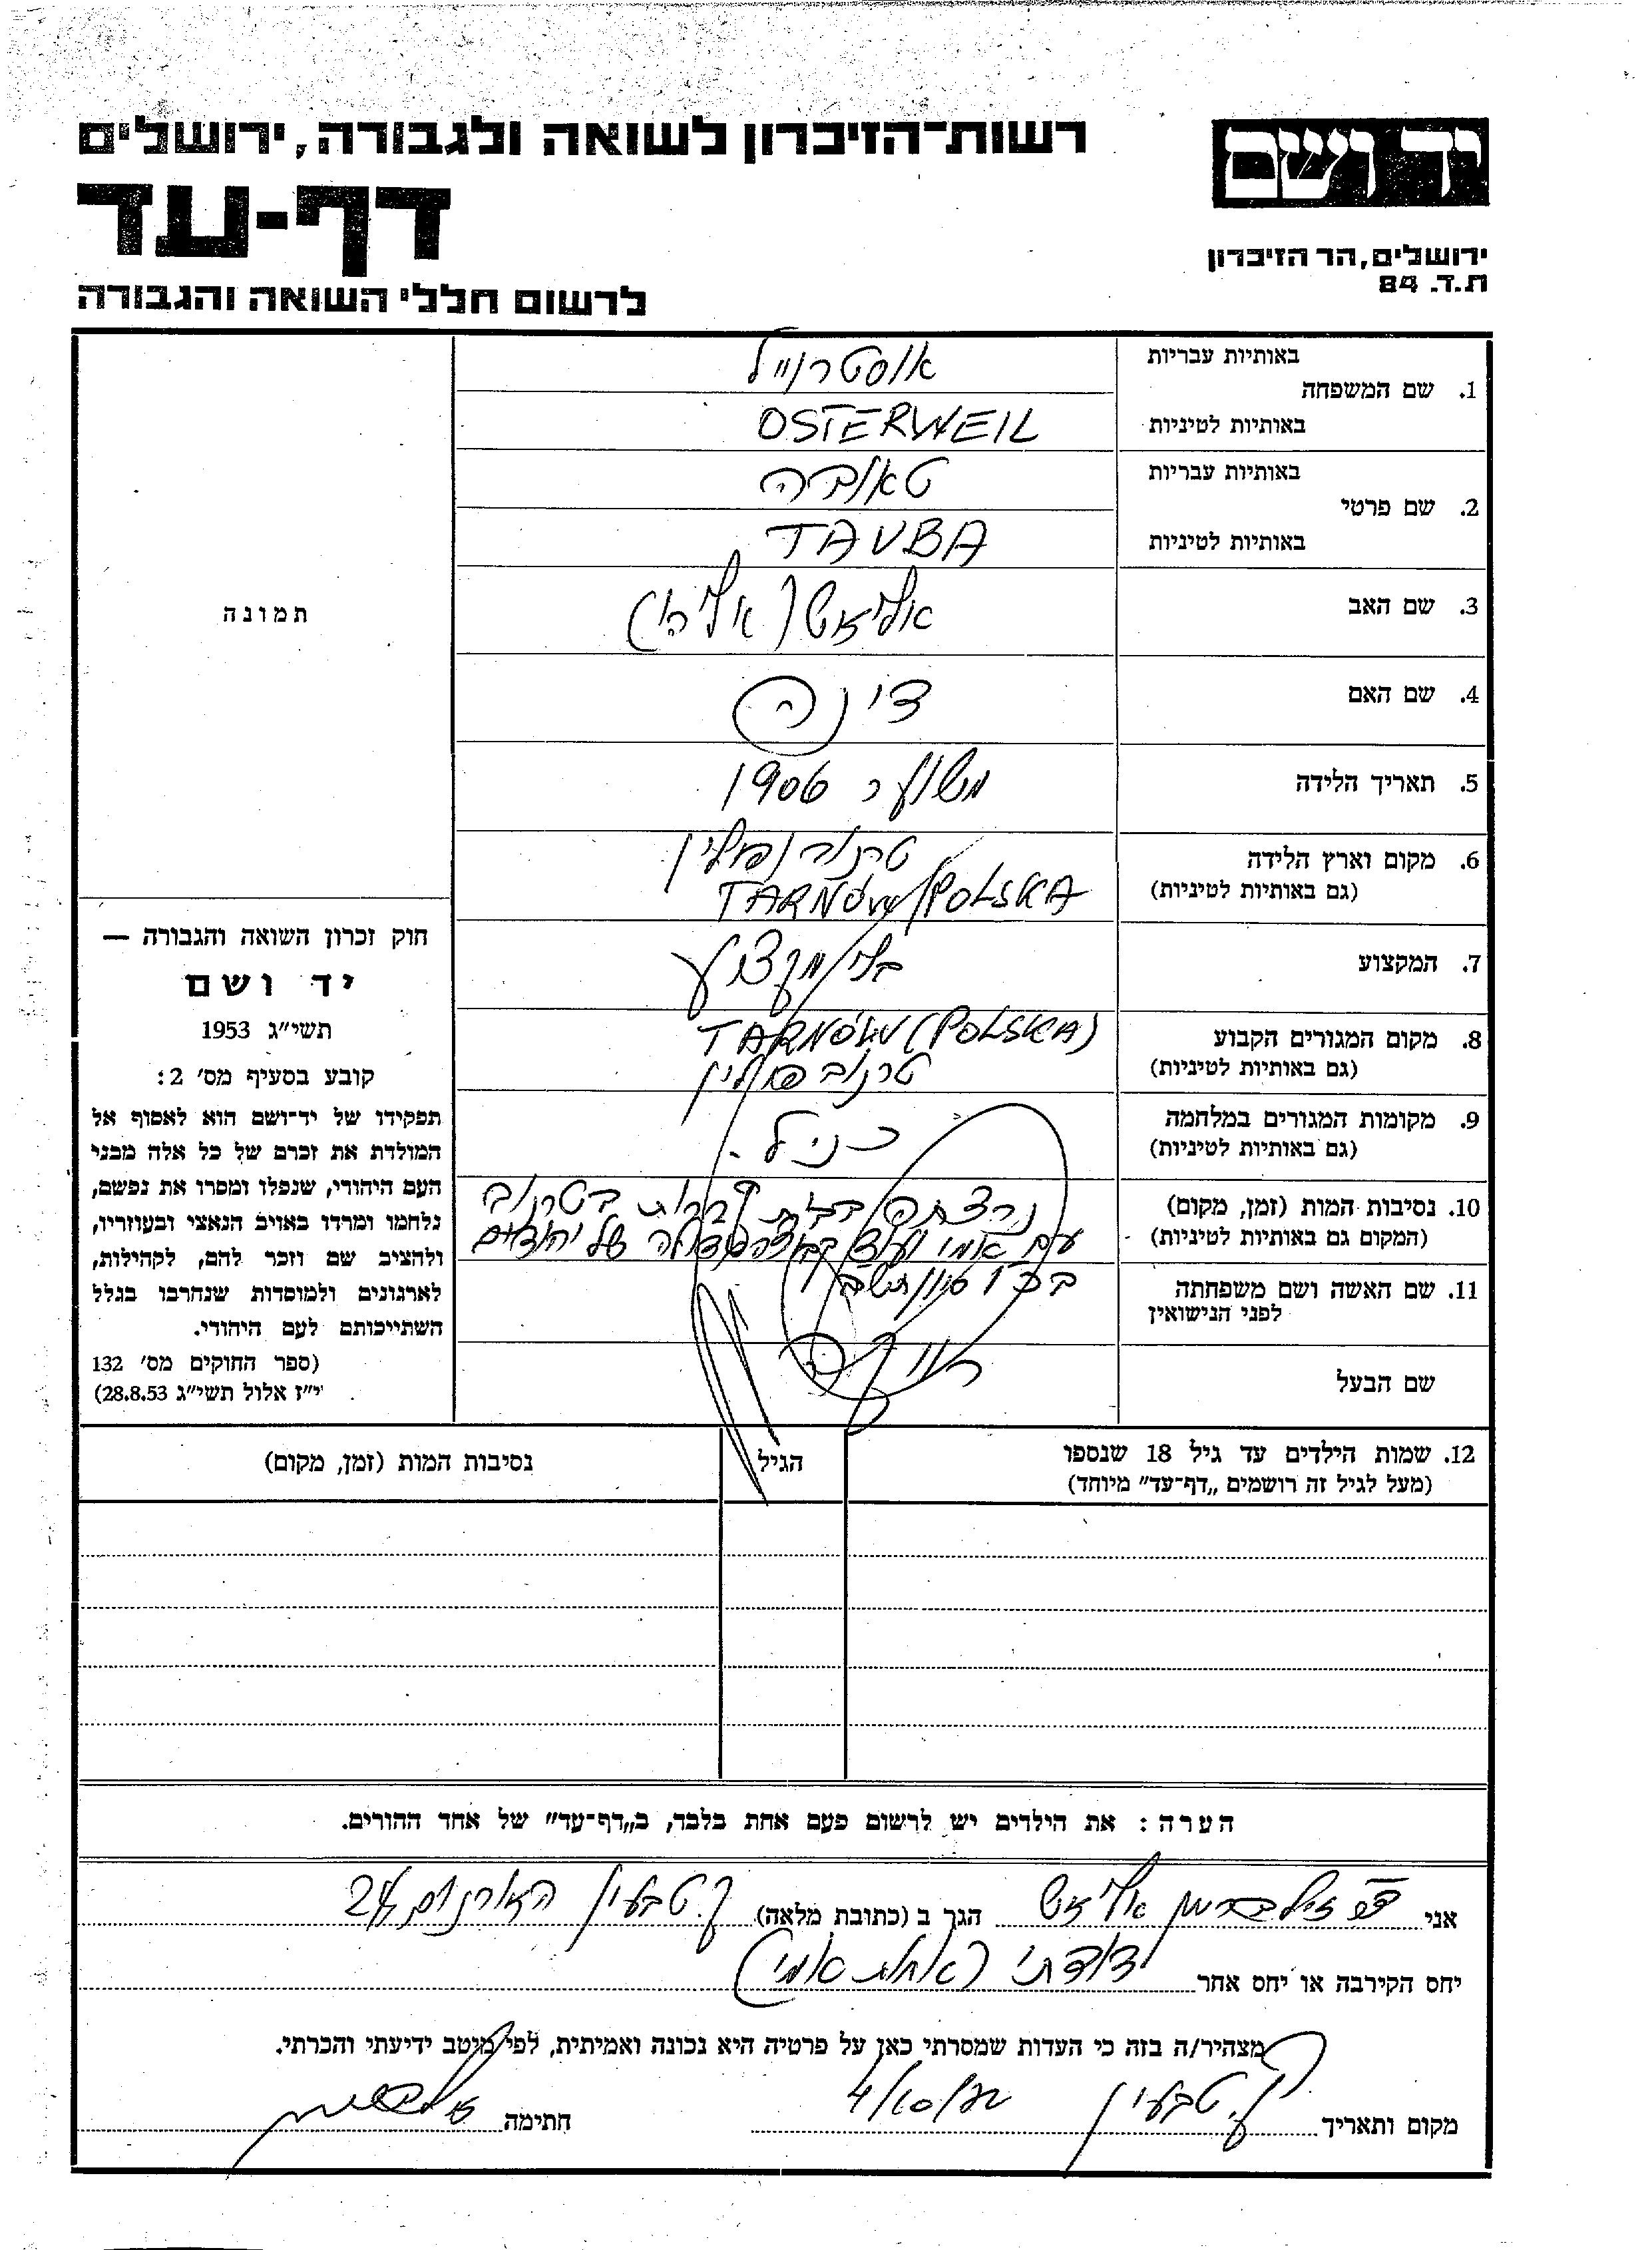 יד ושם
רשות־הזיכרון לשואה ולגבורה, ירושלים
דף-עד
ירושלים, הר הזיכרון
ת.ד. 84
לרשום חללי השואה והגבורה
באותיות עבריות
אוסטרוייל
1. שם המשפחה
באותיות לטיניות
OSTERWEIL
באותיות עבריות
טאובה
2. שם פרטי
באותיות לטיניות
TAUBA
3. שם האב
אליאש (אליהו)
4. שם האם
דינה
5. תאריך הלידה
משוער 1906
6. מקום וארץ הלידה
(גם באותיות לטיניות)
טרנוב/פולין
TARNÓW/POLSKA
7. המקצוע
בלי מקצוע
8. מקום המגורים הקבוע
(גם באותיות לטיניות)
TARNÓW (POLSKA)
טרנוב פולין
9. מקומות המגורים במלחמה
(גם באותיות לטיניות)
כנ״ל.
10. נסיבות המות (זמן, מקום)
(המקום גם באותיות לטיניות)
נרצחה בבית קברות בטרנוב
עם אמי ועוד קבוצה גדולה של יהודים
בכ״ו סיון תש״ב
11. שם האשה ושם משפחתה
לפני הנישואין
שם הבעל
רווקה
תמונה
חוק זכרון השואה והגבורה —
יד ושם
תשי״ג 1953
קובע בסעיף מס׳ 2:
תפקידו של יד־ושם הוא לאסוף אל
המולדת את זכרם של כל אלה מבני
העם היהודי, שנפלו ומסרו את נפשם,
נלחמו ומרדו באויב הנאצי ובעוזריו,
ולהציב שם וזכר להם, לקהילות,
לארגונים ולמוסדות שנחרבו בגלל
השתייכותם לעם היהודי.
(ספר החוקים מס׳ 132
י״ז אלול תשי״ג 28.8.53)
12. שמות הילדים עד גיל 18 שנספו
(מעל לגיל זה רושמים „דף־עד״ מיוחד)
הגיל
נסיבות המות (זמן, מקום)
הערה: את הילדים יש לרשום פעם אחת בלבד, ב„דף־עד״ של אחד ההורים.
אני זילברמן אליאש הגר ב (כתובת מלאה) ק. טבעון האורנים 24
יחס הקירבה או יחס אחר דודתי (אחות אמי)
מצהיר/ה בזה כי העדות שמסרתי כאן על פרטיה היא נכונה ואמיתית, לפי מיטב ידיעתי והכרתי.
מקום ותאריך ק. טבעון 4/10/ חתימה